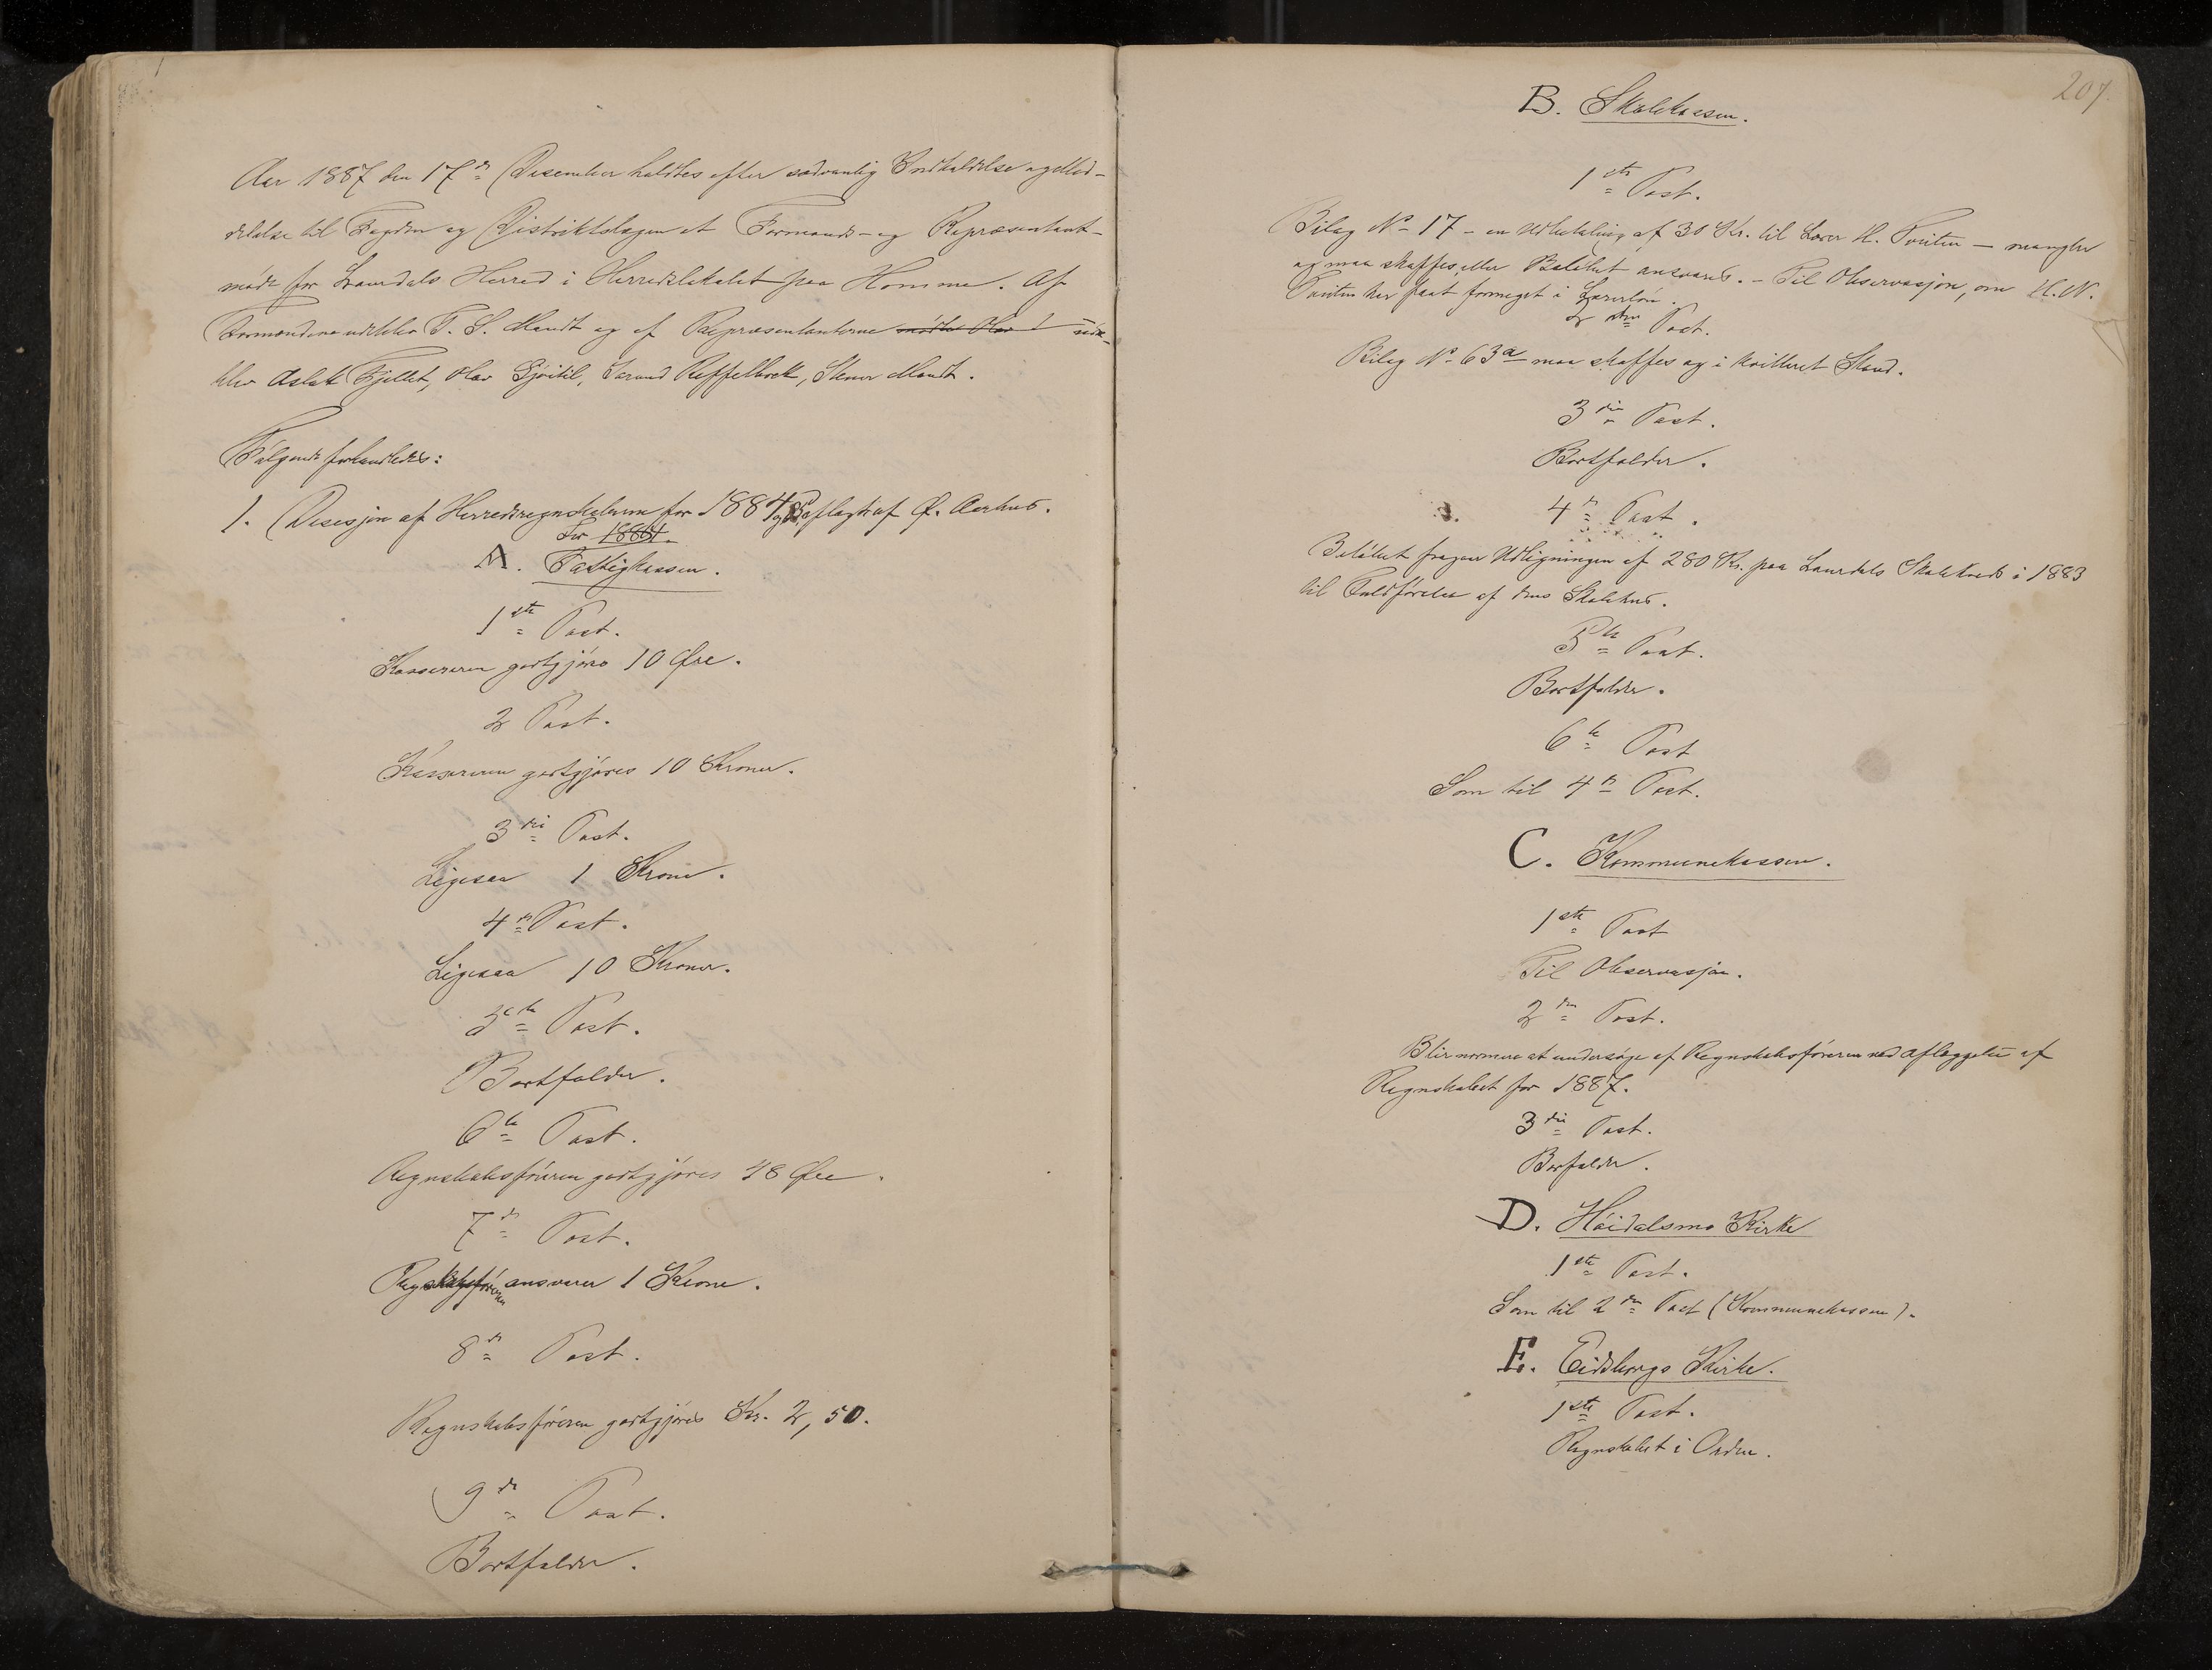 Aar 1887 den 17de Desember holdtes efter sedvanlig Indkaldelse og Med-
delelse til Fogden og Distriktslægen et Formands- og Repræsentant-
møde for Laurdals Herred i Herredslokalet paa Homme. Af
Formændene udeblev T. S. Mandt og af Repræsentanterne mødte Olav ude-
blev Aslak Fjellet, Olav Gjøitil, Steinar Mandt.
Følgende forhandledes:
1. Desesjon af Herredsregnskaberne for 1884 aflagt af Ø. Aarhus.
for 1884.
A. Fattigkassen.
1ste Post.
Kassereren godtgjøres 10 Øre.
2 Post.
Kassereren godtgjøres 10 Kroner.
3die Post.
Ligesaa 1 Krone.
4de Post.
Ligesaa 10 Kroner.
5te Post.
Bortfalder.
6te Post.
Regnskabsføreren godtgjøres 48 Øre.
7de Post.
Regnskabsføreren ansvarer 1 Krone.
8de Post.
Regnskabsføreren godtgjøres Kr. 2,50.
9de Post.
Bortfalder.
207.
B. Skolekassen.
1ste Post.
Bilag No 17 - en Udbetaling af 30 Kr. til Lærer H. Tveiten — mangler
og maa skaffes, eller Beløbet ansvares. - Til Observasjon, om H. N.
Tveiten har faat formeget i Lærerløn.
2den Post.
Bilag No 63a maa skaffes og i kvitteret Stand.
3die Post.
Bortfalder.
4de Post.
Beløbet fragaar Udligningen af 280 Kr. paa Laurdals Skolekreds i 1883
til Fuldførelse af dens Skolehus.
5te Post.
Bortfalder.
6te Post
Som til 4de Post.
C. Kommunekassen.
1ste Post
Til Observasjon.
2den Post.
Blir nærmere at undersøge af Regnskabsføreren ved Aflæggelse af
Regnskabet for 1887.
3die Post.
Borfalder.
D. Høidalsmo Kirke
1ste Post.
Som til 2den Post (Kommunekassen).
E. Eidsborgs Kirke.
1ste Post.
Regnskabet i Orden.